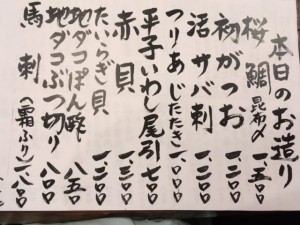 本日のお造り
桜鯛 昆布〆 一、五〇〇
初がつお 一、二〇〇
活サバ刺 一、二〇〇
つりあじたたき 一、〇〇〇
平子いわし尾引 七〇〇
赤貝 一、三〇〇
たいらぎ貝 一、二〇〇
地ダコぽん酢 八五〇
地ダコぶつ切り 八〇〇
馬刺(霜ふり) 一、八〇〇